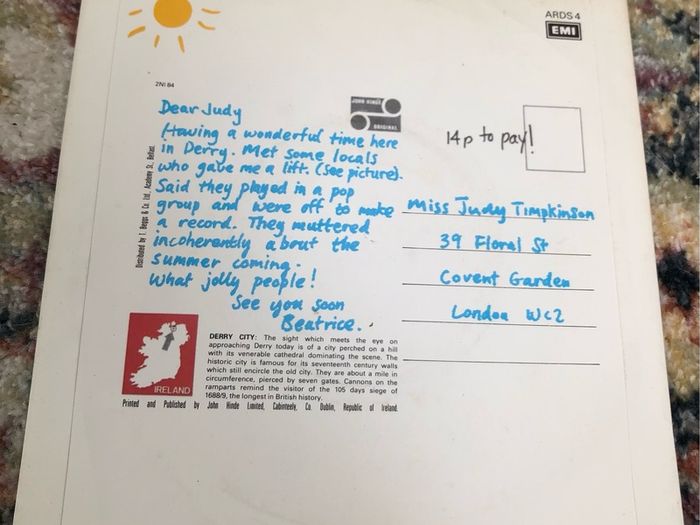 ARDS 4
EMI
2NI 84
JOHN HINDE
ORIGINAL
Dear Judy
Having a wonderful time here
in Derry. Met some locals
who gave me a lift. (See picture).
Said they played in a pop
group and were off to make
a record. They muttered
incoherently about the
summer coming.
What jolly people!
See you soon
Beatrice.
Distributed by T. Beggs & Co. Ltd., Academy St., Belfast.
14p to pay!
Miss Judy Timpkinson
39 Floral St
Covent Garden
London WC2
IRELAND
DERRY CITY: The sight which meets the eye on
approaching Derry today is of a city perched on a hill
with its venerable cathedral dominating the scene. The
historic city is famous for its seventeenth century walls
which still encircle the old city. They are about a mile in
circumference, pierced by seven gates. Cannons on the
ramparts remind the visitor of the 105 days siege of
1688/9, the longest in British history.
Printed and Published by John Hinde Limited, Cabinteely, Co. Dublin, Republic of Ireland.